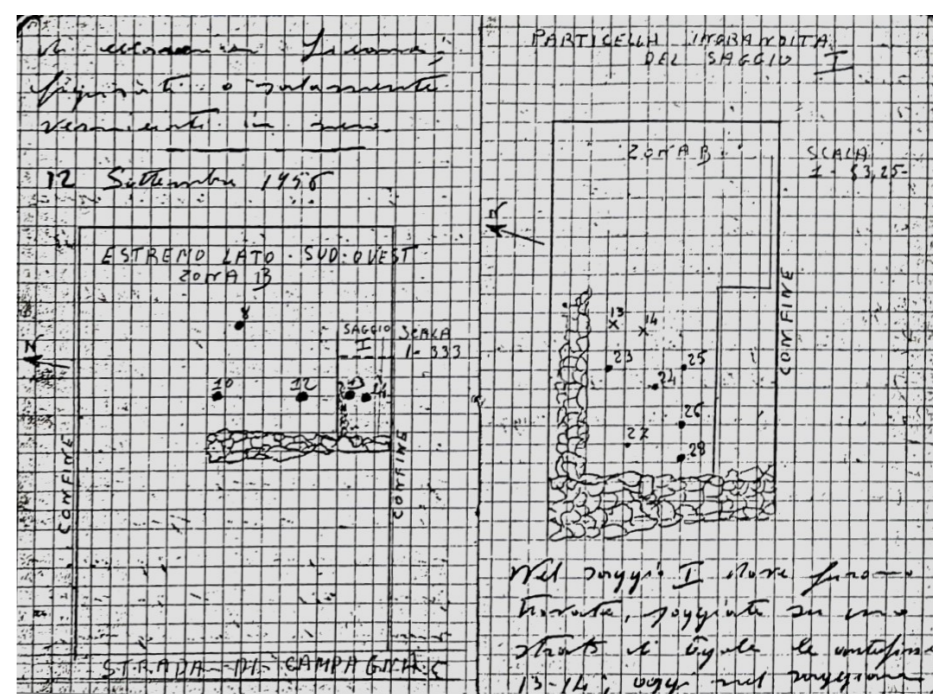 figurati o solamente
verniciati in nero.
12 Settembre 1956
ESTREMO LATO SUD-OVEST
ZONA B
8
SAGGIO
I
SCALA
1-333
N
10
12
13
14
CONFINE
CONFINE
STRADA DI CAMPAGNA
PARTICELLA INGRANDITA
DEL SAGGIO I
ZONA B
SCALA
1-83,25
N
CONFINE
13
14
23
24
25
26
27
28
Nel saggio I dove furono
trovate, poggiate su uno
strato di tegole le
13-14, oggi nel